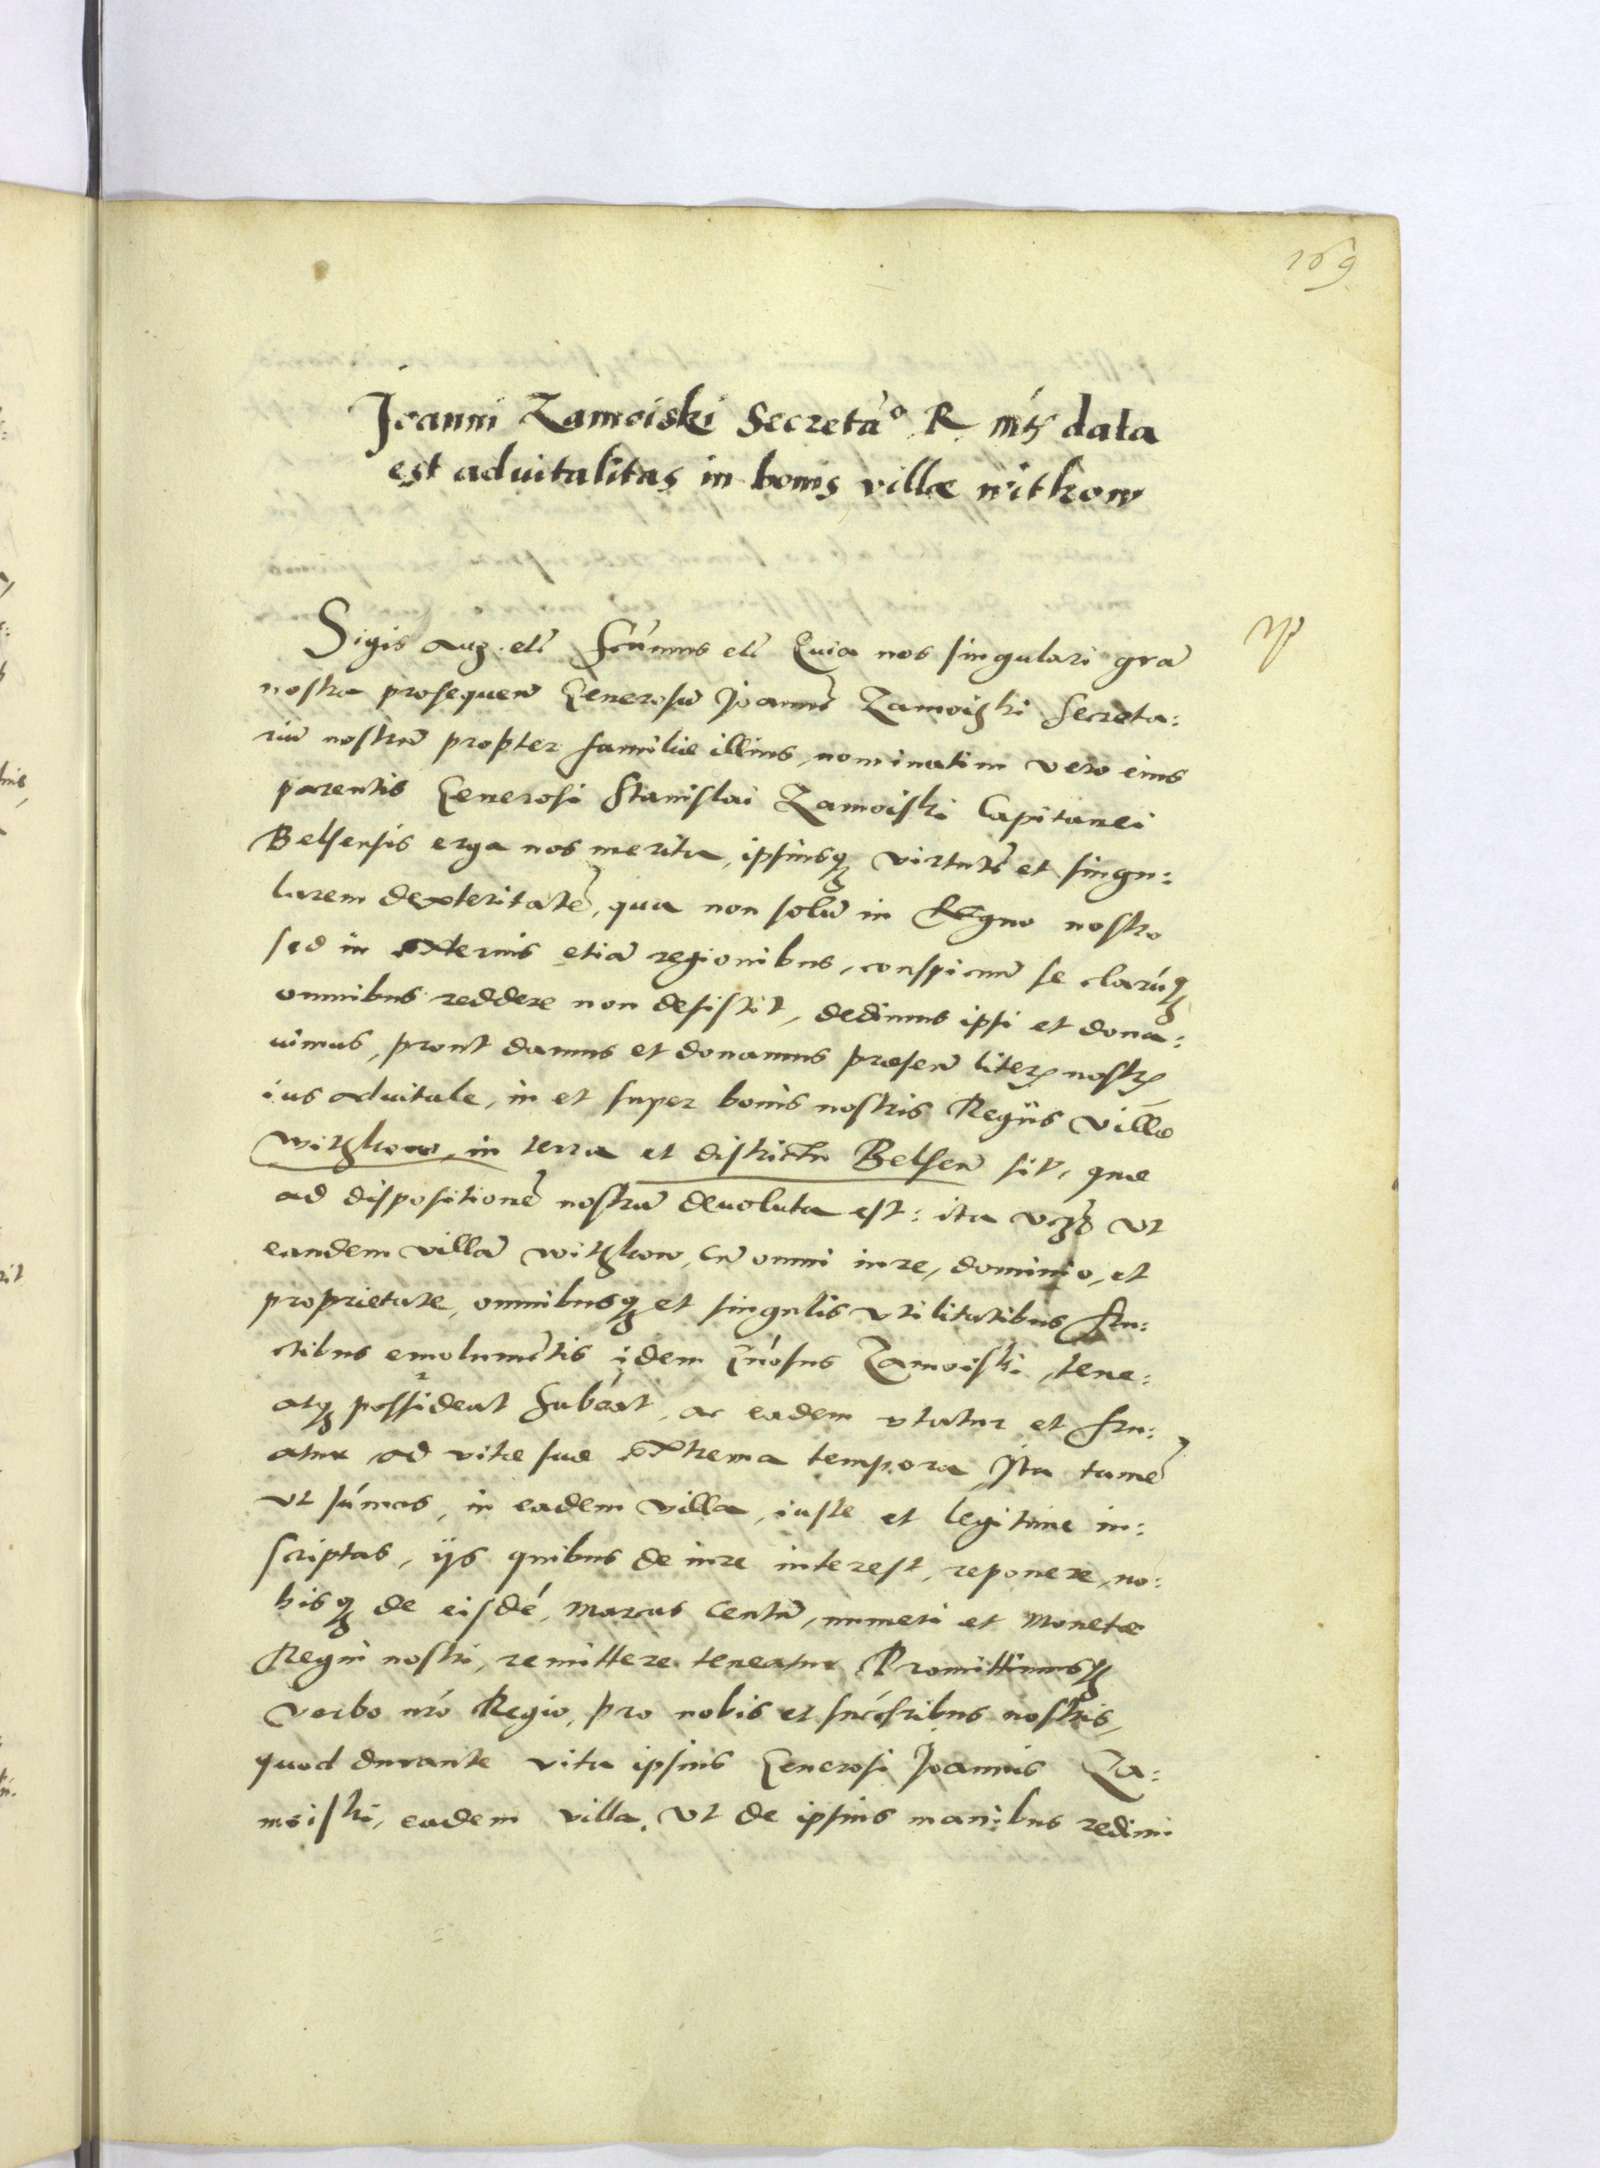 169
Joanni Zamoiski Secretā° R. mt̃s data
est aduitalitas in bonis villæ witkow
Sigis Aug. etc̃ Scimus etc̃ Quia nos singulari gra͂
nostra prosequen̄ Generosū Joannē Zamoiski Secreta:
riū nostrū propter familiæ illius, nominatim vero eius
parentis Generosi Stanislai Zamoiski Capitanei
Belsensis erga nos merita, ipsiusq̃ virtutē et singu:
larem dexteritatē, qua non solū in Regno nostro
sed in externis etiā regionibus, conspicuū se clarūq̃
omnibus reddere non desistit, dedimus ipsi et dona:
uimus, prout damus et donamus præsen̄ literis nostris
ius aduitale, in et super bonis nostris Regijs villæ
witzkow, in terra et districtu Belsen̄ sit, quæ
ad dispositionē nostrā deuoluta est: ita vt
eandem villā witzkow, cū omni iure, dominio, et
proprietate, omnibusq̃ et singulis vtilitatibus fru:
ctibus emolumētis idem Gn̄osus Zamoiski, tene:
atq̃ possideat habeat, ac eadem vtatur et fru:
atur ad vitæ suæ extrema tempora, Ita tamē
vt sum̄as, in eadem villa, iuste et legitime in:
scriptas, ijs quibus de iure interest, reponere, no:
bisq̃ de eisdē, marcas centū, numeri et monetæ
Regni nostri, remittere teneatur. Promittimusq̃
verbo nr̄o Regio, pro nobis et succ̄ribus nostris,
quod durante vita ipsius Generosi Joannis Za:
moiski, eadem villa, vt de ipsius manibus redimi